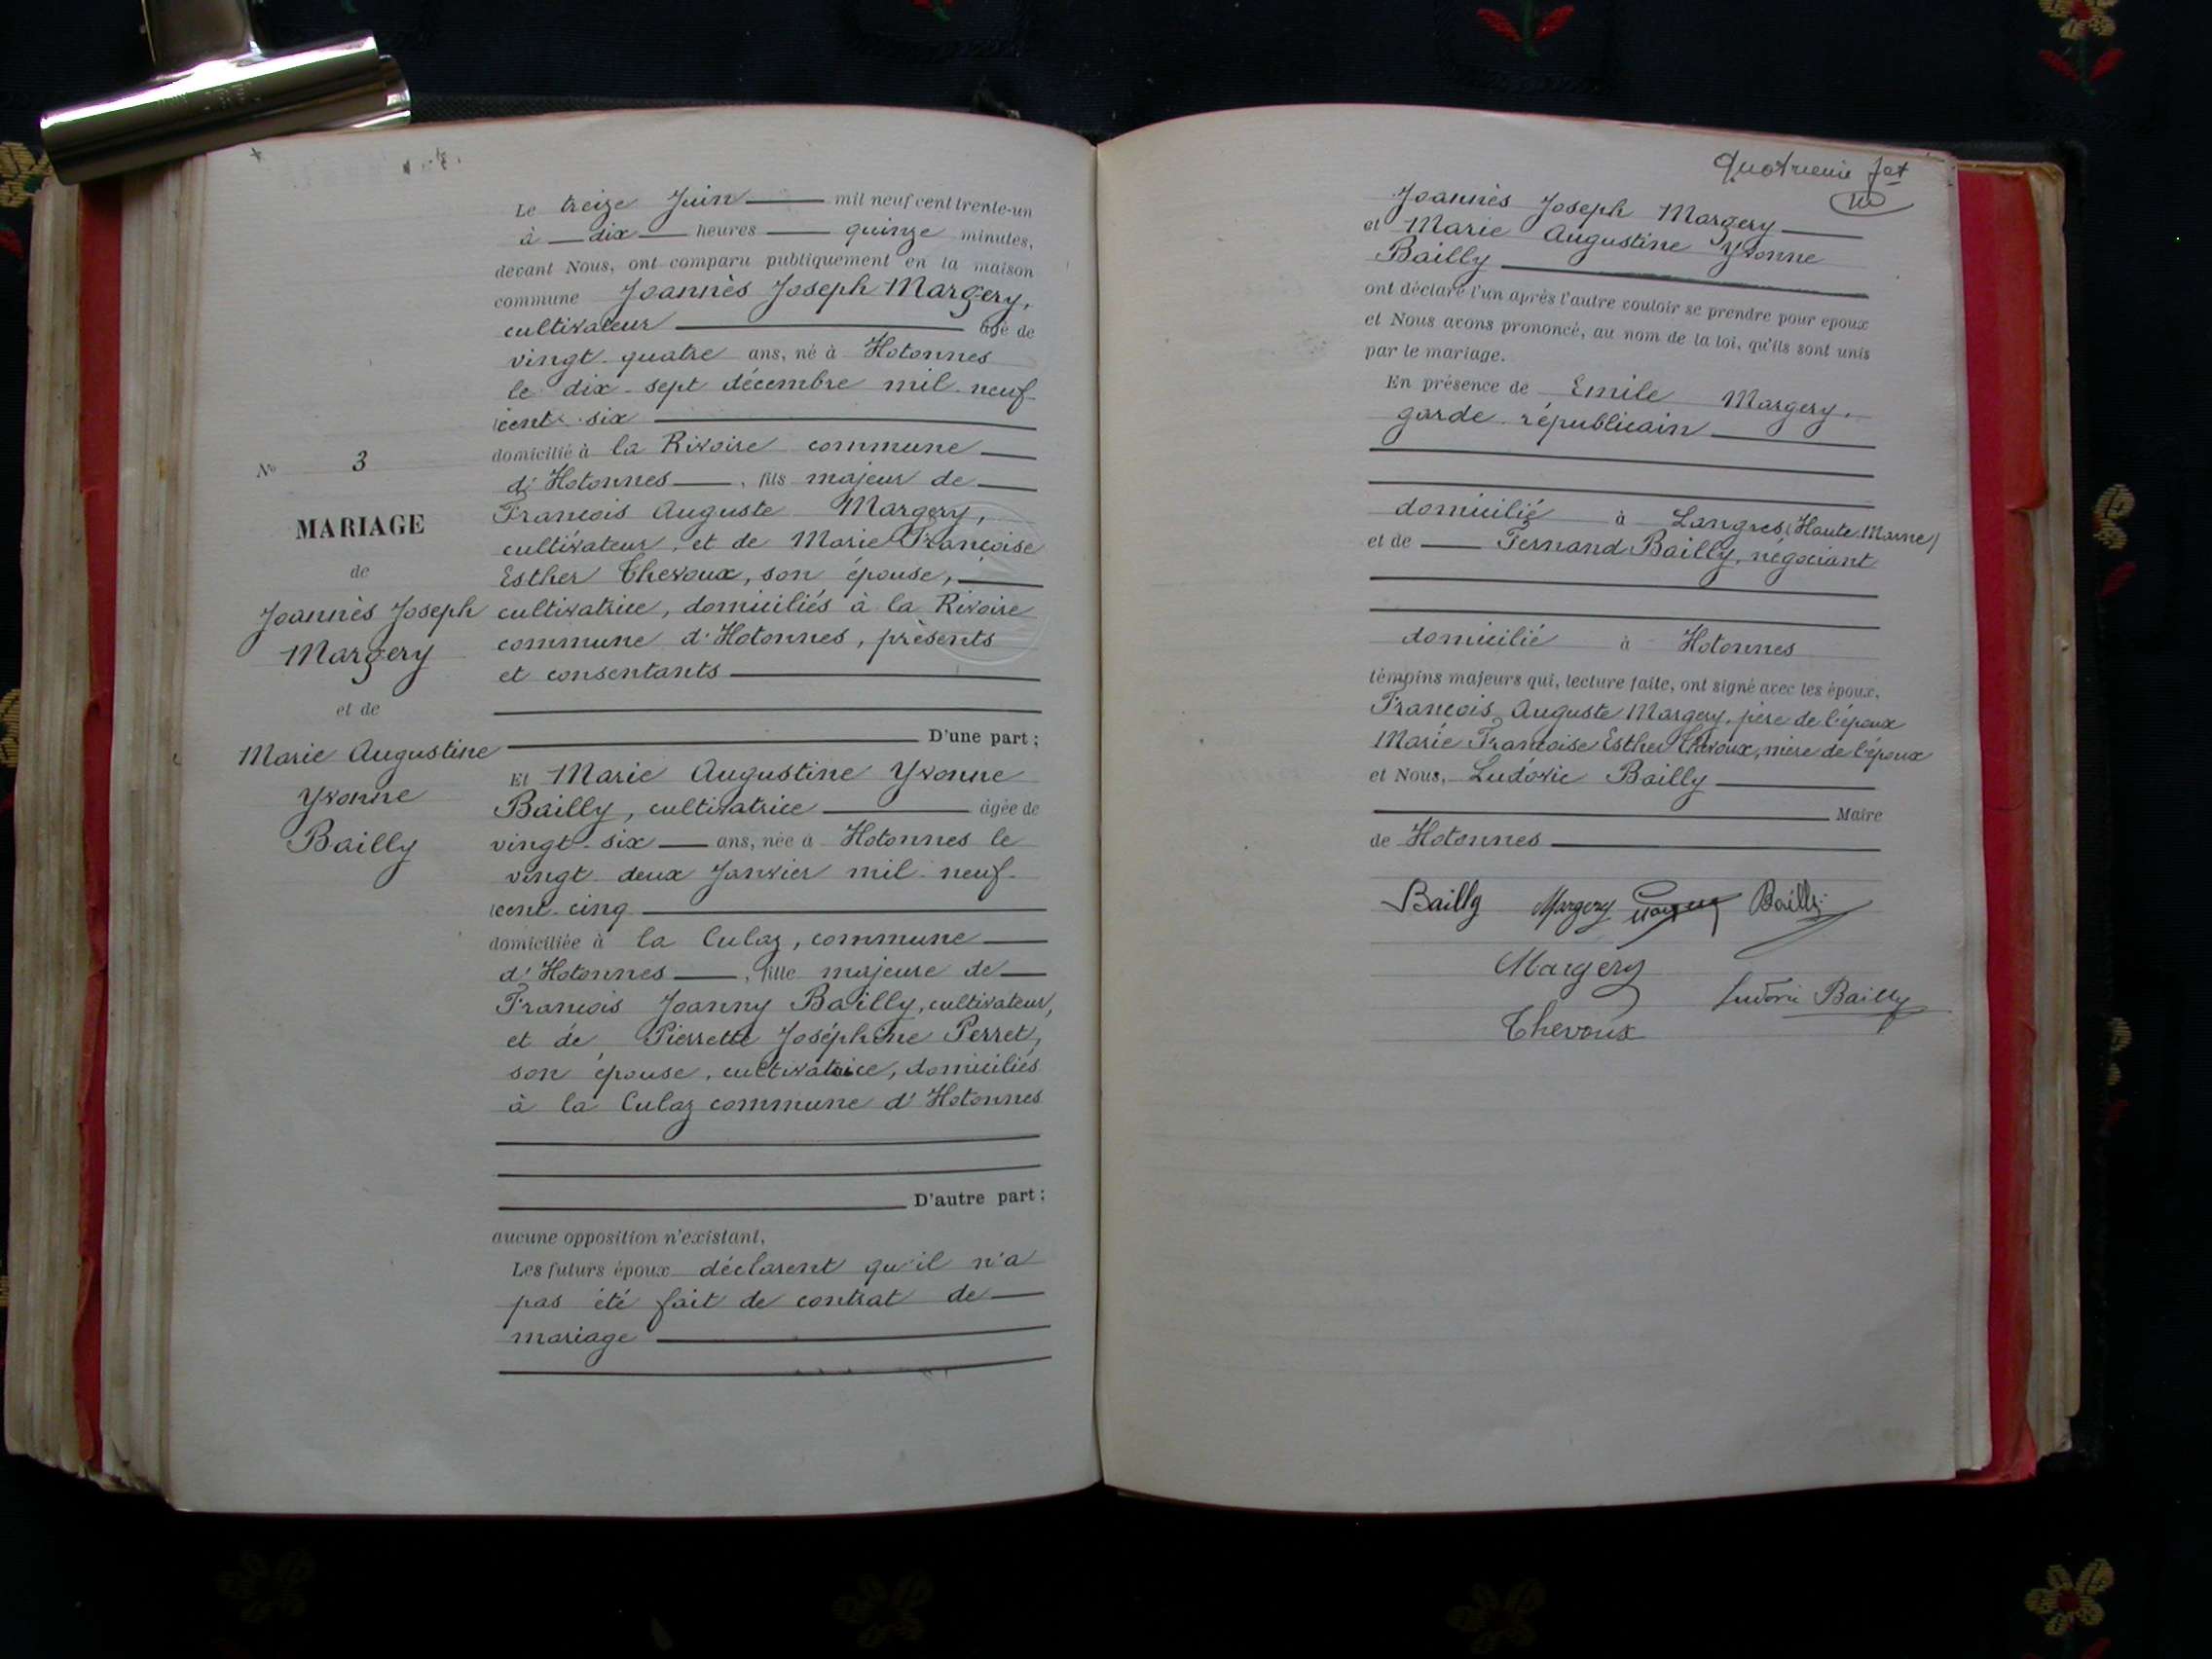 Le treize Juin mil neuf cent trente-un
à dix heures quinze minutes,
devant Nous, ont comparu publiquement en la maison
commune Joannès Joseph Margery,
cultivateur âgé de
vingt-quatre ans, né à Hotonnes
le dix-sept décembre mil-neuf-
cent-six
domicilié à la Rivoire commune
d'Hotonnes, fils majeur de
François Auguste Margery,
cultivateur, et de Marie Françoise
Esther Thevoux, son épouse,
cultivatrice, domiciliés à la Rivoire
commune d'Hotonnes, présents
et consentants
D'une part;
Et Marie Augustine Yvonne
Bailly, cultivatrice âgée de
vingt-six ans, née à Hotonnes le
vingt-deux Janvier mil-neuf-
cent-cinq
domiciliée à la Culaz, commune
d'Hotonnes, fille majeure de
François Joanny Bailly, cultivateur,
et de Pierrette Joséphine Perret,
son épouse, cultivatrice, domiciliés
à la Culaz commune d'Hotonnes
D'autre part;
aucune opposition n'existant,
Les futurs époux déclarent qu'il n'a
pas été fait de contrat de
mariage
No 3
MARIAGE
de
Joannès Joseph
Margery
et de
Marie Augustine
Yvonne
Bailly
Joannès Joseph Margery
et Marie Augustine Yvonne
Bailly
ont déclaré l'un après l'autre vouloir se prendre pour époux
et Nous avons prononcé, au nom de la loi, qu'ils sont unis
par le mariage.
En présence de Emile Margery,
garde républicain
domicilié à Langres (Haute-Marne)
et de Fernand Bailly, négociant
domicilié à Hotonnes
témoins majeurs qui, lecture faite, ont signé avec les époux,
François Auguste Margery, père de l'époux
Marie Françoise Esther Thevoux, mère de l'époux
et Nous, Ludovic Bailly
Maire
de Hotonnes
Bailly Margery Bailly
Margery
Ludovic Bailly
Thevoux